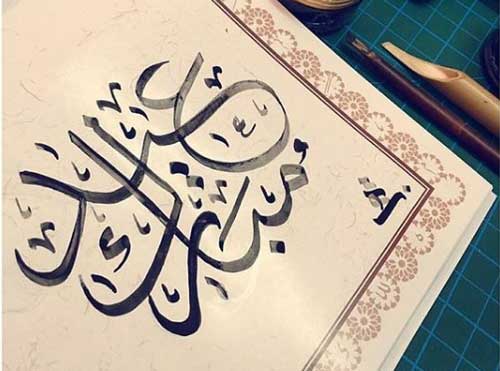 عيد مُبارك